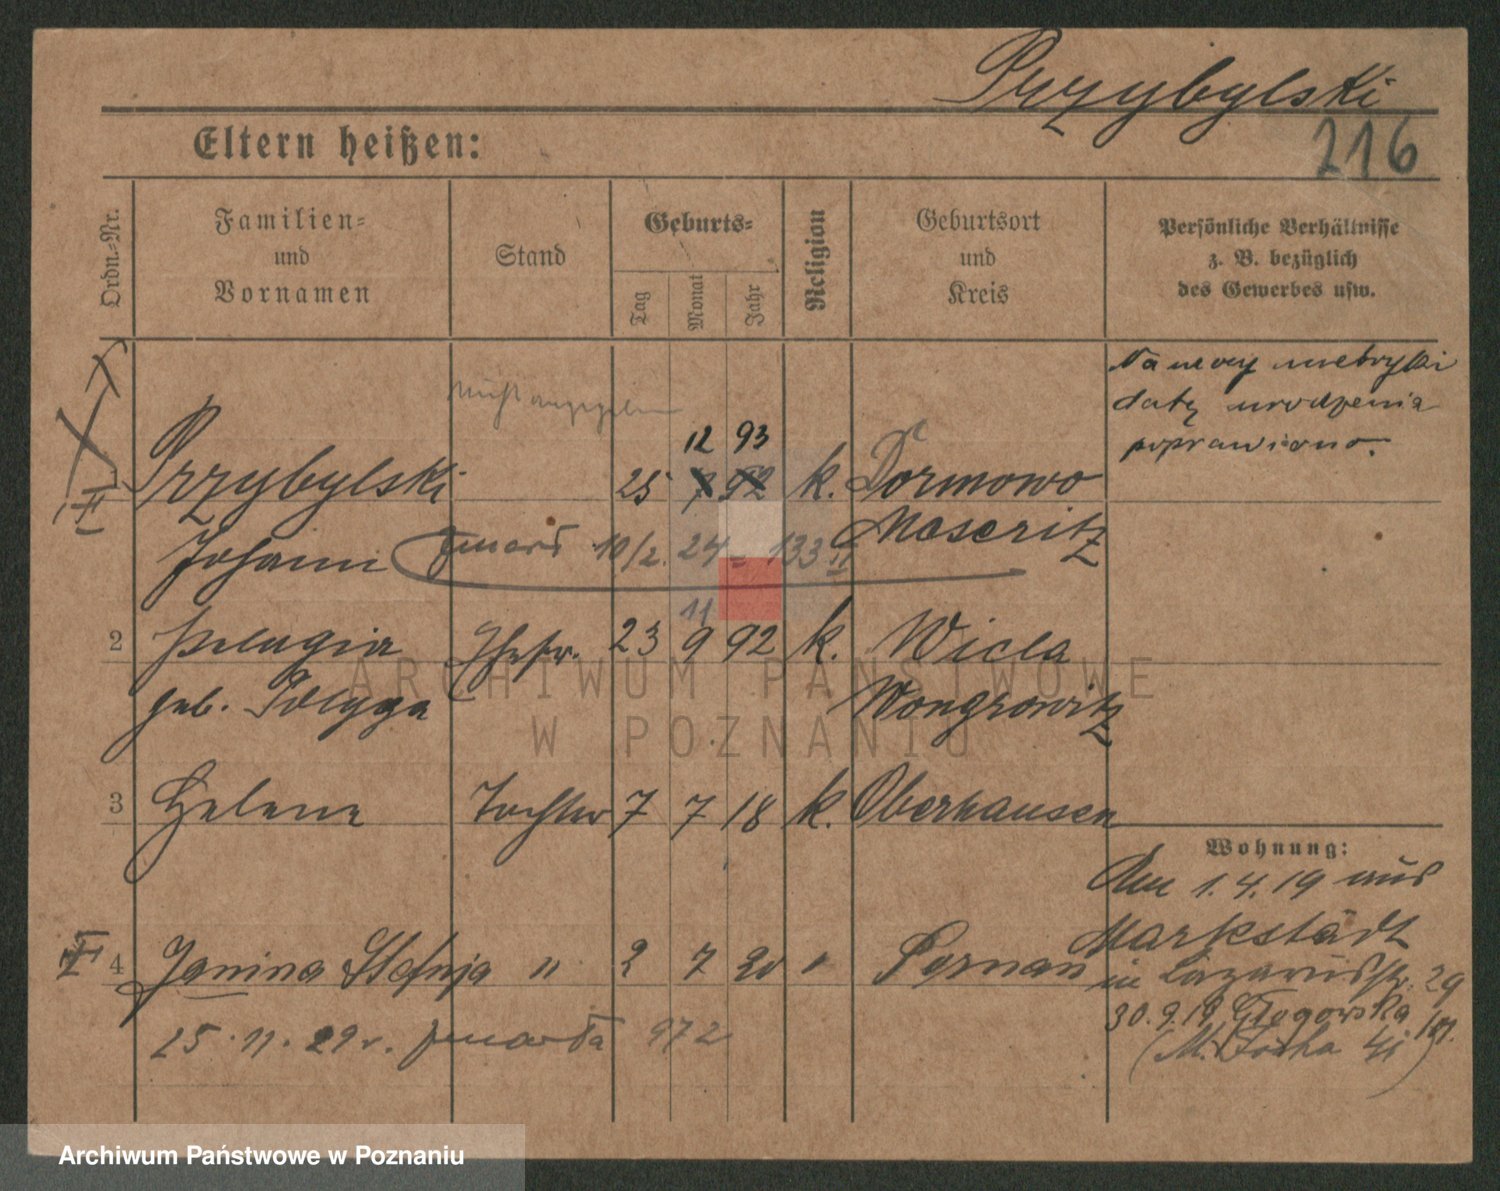 Przybylski
216
Eltern heißen:
Ordn.-Nr.
Familien-
und
Vornamen
Stand
Geburts-
Tag
Monat
Jahr
Religion
Geburtsort
und
Kreis
Persönliche Verhältnisse
z. B. bezüglich
des Gewerbes usw.
Na mocy metryki
daty urodzenia
poprawiono.
nicht angegeben
12 93
1 Przybylski 25 7 92 k. Dormowo
Johann zmarł 10/2. 24 = 133 II Meseritz
11
2 Pelagia Ehefr. 23 9 92 k. Wiela
geb. Wongrowitz
3 Helene Tochter 7 7 18 k. Oberhausen
Wohnung:
Am 1.4.19 aus
Markstädt
4 Janina Stefanja " 2 7 20 " Poznań
in Lazarusstr. 29
30.9.19 Głogowska 107.
25.11.29 r. zmarła 972
(M. Focha
ARCHIWUM PAŃSTWOWE
W POZNANIU
Archiwum Państwowe w Poznaniu